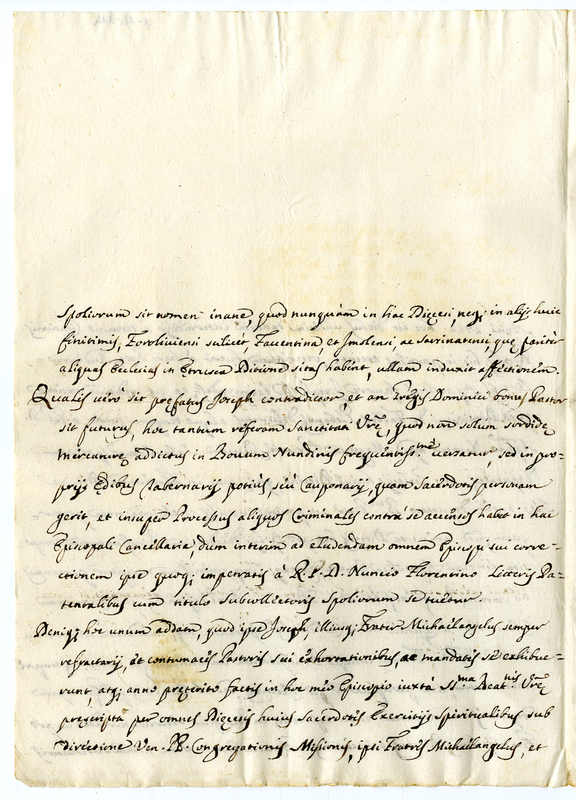 Spoliorum sit nomen inane, quod nunquàm in hac Diœcesi, neq; in alijs huic
finitimis, Foroliviensi scilicet, Faventina, et Imolensi, ac Sarsinatensi, quę pariter
aliquas Ecclesias in Etrusca Ditione sitas habent, ullam induxit affectionem.
Qualis verò sit pręfatus Joseph contradictor, et an Gregis Dominici bonus Pastor
sit futurus, hoc tantùm referam Sanctitati Vrę, quod non solum sordidę
mercaturę addictus in Boum Nundinis frequentissᵐᵉ versatur, sed in pro-
prijs Ędibus Tabernarij potiùs, seù Cauponarij, quam Sacerdotis personam
gerit, et insuper Processus aliquos Criminales contrà se accensos habet in hac
Episcopali Cancellaria, dùm interim ad eludendam omnem Episcopi sui corre-
ctionem ipse quoq; impetratis à R.P.D. Nuncio Florentino Literis Pa-
tentalibus cum titulo Subcollectoris Spoliorum se tuetur.
Deniq; hoc unum addam, quod ipse Joseph, illiusq; Frater Michaelangelus semper
refractarij, et contumaces Pastoris sui exhortationibus, ac mandatis se exhibue-
runt, atq; anno pręterito factis in hoc meo Episcopio iuxtà SSᵐᵃ Beatⁿⁱˢ Vrę
pręscripta per omnes Diœcesis huius Sacerdotes Exercitijs Spiritualibus sub
directione Ven. PP. Congregationis Missionis, ipsi Fratres Michaelangelus, et